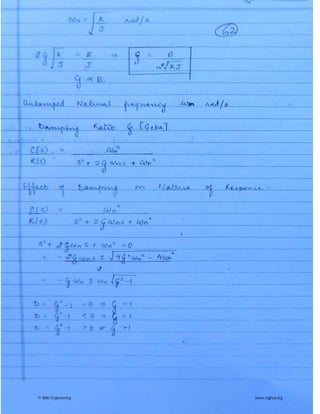 ωn = √K/J rad/s
62
2G √K/J = B/J ⇒ G = B/2√KJ
G ∝ B.
Undamped Natural frequency ωn rad/s
∴ Damping Ratio G [Zeta]
C(s)/R(s) = ωn²/s² + 2Gωns + ωn²
Effect of Damping on Nature of Response -
C(s)/R(s) = ωn²/s² + 2Gωns + ωn²
s² + 2Gωns + ωn² = 0
= - 2Gωn ± √4G²ωn² - 4ωn²/2
= - Gωn ± ωn √G²-1
D = G²-1 = 0 ⇒ G = 1
D = G²-1 < 0 ⇒ G < 1
D = G²-1 > 0 ⇒ G > 1
www.raghul.org